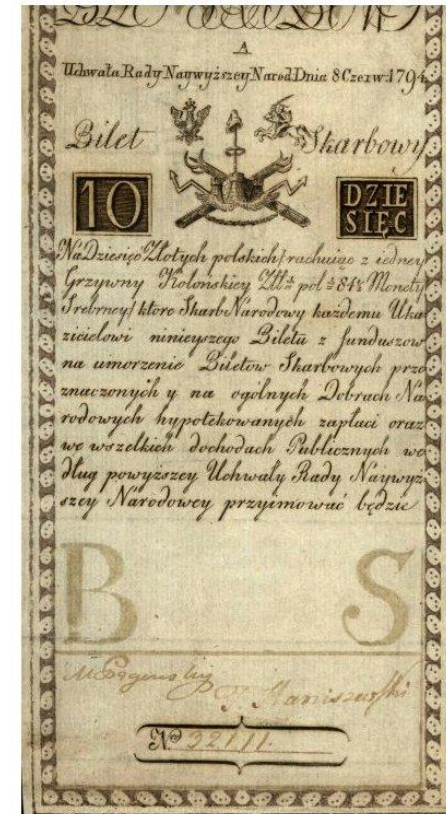 A
Uchwała Rady Naywyższey Narod Dnia 8 Czerw: 1794
Bilet Skarbowy
10 DZIE
SIĘC
Na Dziesięc Złotych polskich/rachuiąc z iedney
Grzywny Kolońskiey pol 84½ Monety
Srebrney/ktore Skarb Narodowy każdemu Uka
zicielowi ninieyszego Biletu z funduszow
na umorzenie Biletow Skarbowych prze
znaczonych y na ogólnych Dobrach Na
rodowych hypotekowanych zapłaci oraz
we wszelkich dochodach Publicznych we
dług powyższey Uchwały Rady Naywyż
szey Narodowey przyimować będzie
B S
M
J. Staniszewski
No 32111.